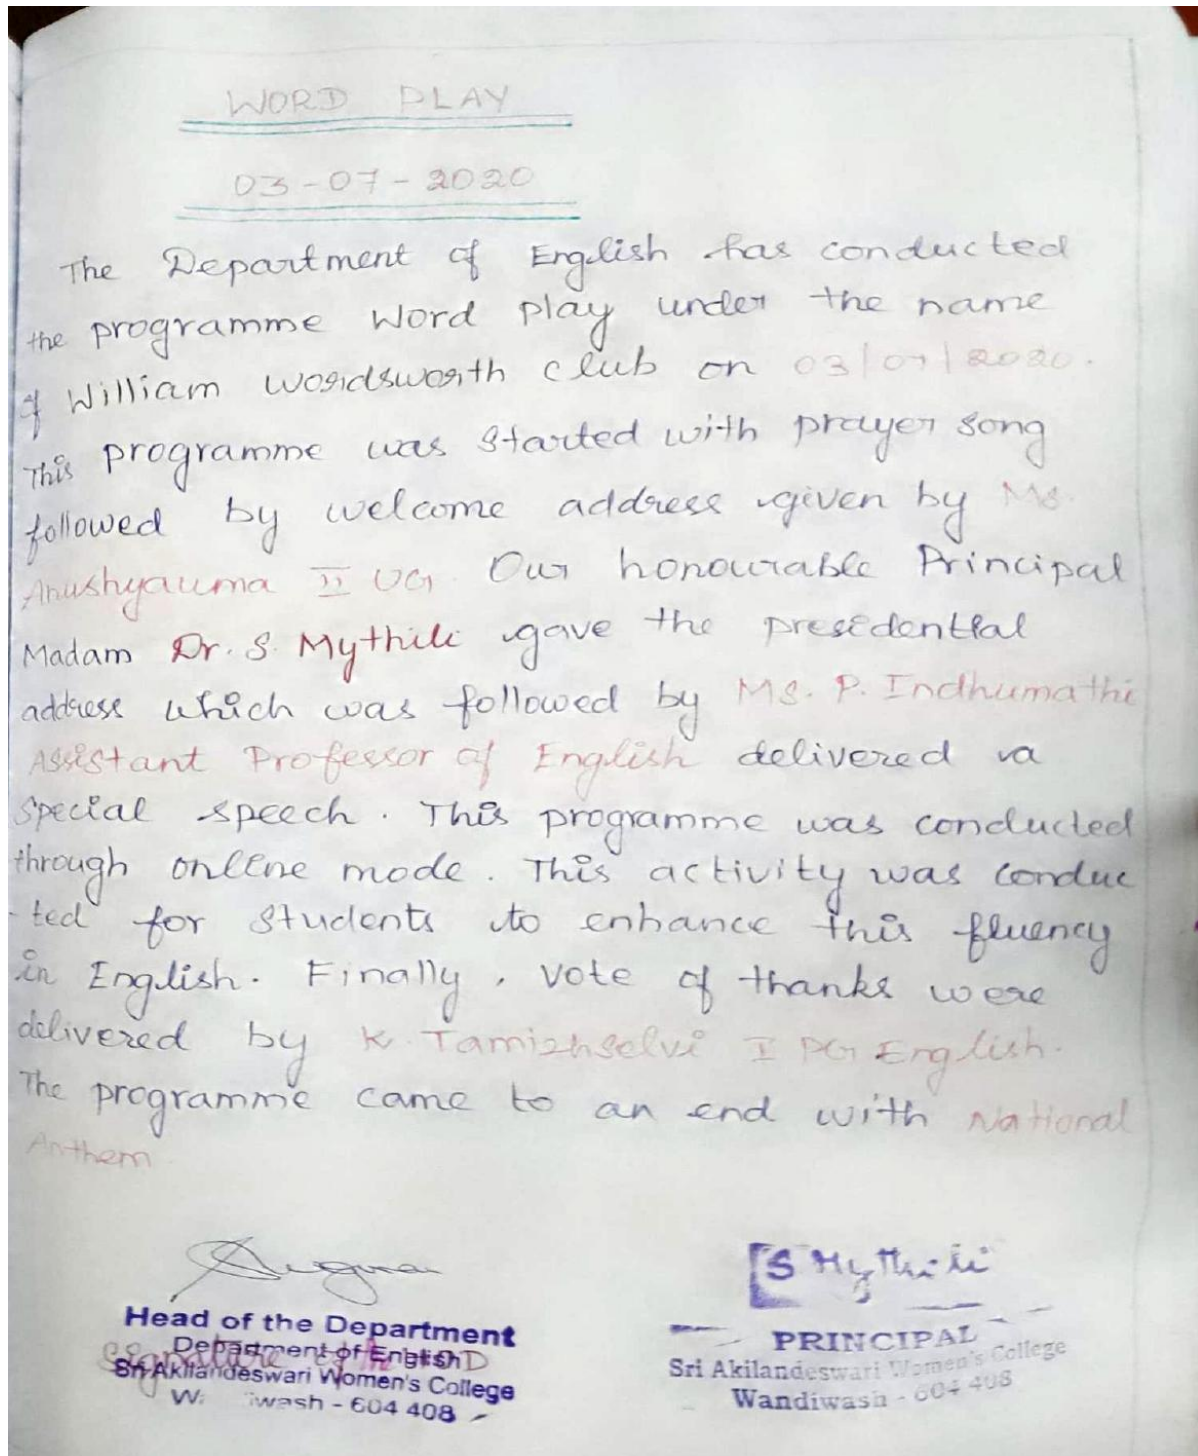 WORD PLAY
03-07-2020
The Department of English has conducted
the programme Word play under the name
of William Wordsworth club on 03/07/2020.
This programme was started with prayer song
followed by welcome address given by Ms.
Anushyauma II UG. Our honourable Principal
Madam Dr. S. Mythili gave the presidential
address which was followed by Ms. P. Indhumathi
Assistant Professor of English delivered a
special speech. This programme was conducted
through online mode. This activity was conduc
-ted for students to enhance this fluency
in English. Finally, vote of thanks were
delivered by K. Tamizhselvi I PG English.
The programme came to an end with National
Anthem.
S Mythili
Head of the Department
Department of English
Signature of the HOD
Sri Akilandeswari Women's College
iwash - 604 408
PRINCIPAL
Sri Akilandeswari Women's College
Wandiwash - 604 408